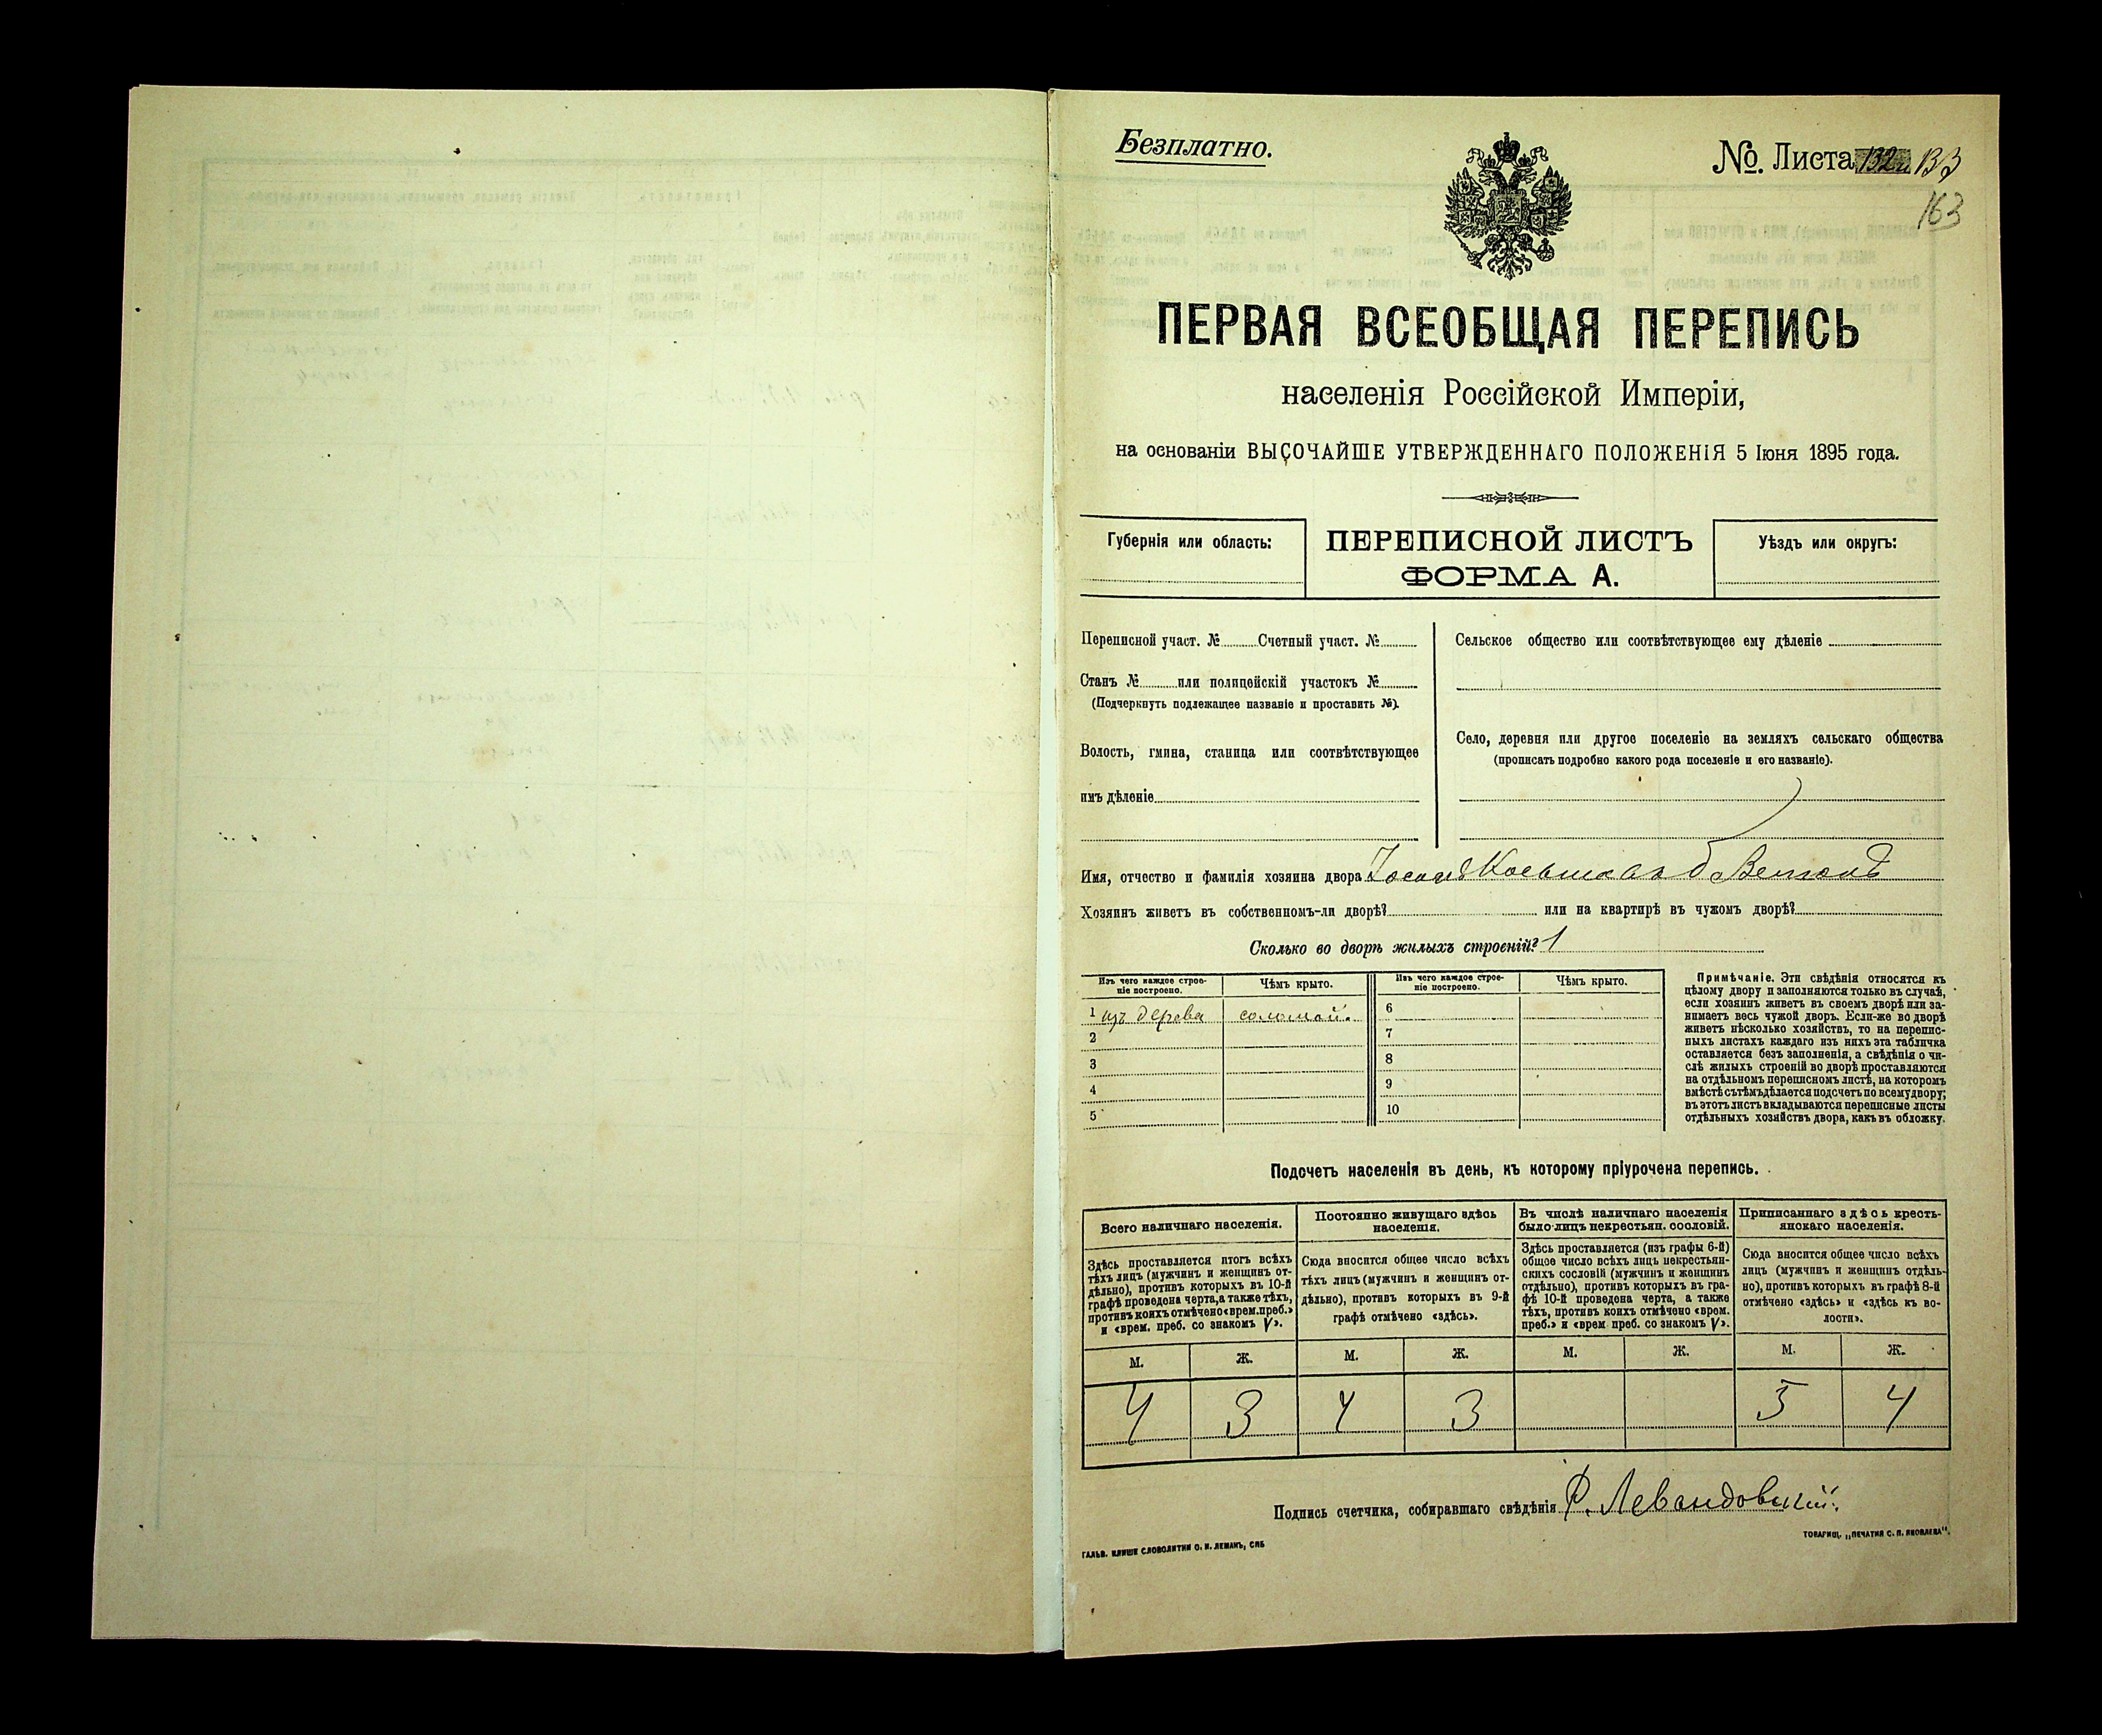 Безплатно.
№. Листа 133
163
ПЕРВАЯ ВСЕОБЩАЯ ПЕРЕПИСЬ
населенія Россійской Имперіи,
на основаніи ВЫСОЧАЙШЕ УТВЕРЖДЕННАГО ПОЛОЖЕНІЯ 5 Іюня 1895 года.
Губернія или область:
ПЕРЕПИСНОЙ ЛИСТЪ
ФОРМА А.
Уѣздъ или округъ:
Переписной участ. № Счетный участ. №
Станъ № или полицейскій участокъ №
(Подчеркнуть подлежащее названіе и проставить №).
Волость, гмина, станица или соотвѣтствующее
имъ дѣленіе
Сельское общество или соотвѣтствующее ему дѣленіе
Село, деревня или другое поселеніе на земляхъ сельскаго общества
(прописать подробно какого рода поселеніе и его названіе).
Имя, отчество и фамилія хозяина двора
Хозяинъ живетъ въ собственномъ-ли дворѣ? или на квартирѣ въ чужомъ дворѣ?
Сколько во дворѣ жилыхъ строеній? 1
Изъ чего каждое строе-
ніе построено.
Чѣмъ крыто.
Изъ чего каждое строе-
ніе построено.
Чѣмъ крыто.
1 изъ дерева соломой. 6
2 7
3 8
4 9
5 10
Примѣчаніе. Эти свѣдѣнія относятся къ
цѣлому двору и заполняются только въ случаѣ,
если хозяинъ живетъ въ своемъ дворѣ или за-
нимаетъ весь чужой дворъ. Если-же во дворѣ
живетъ нѣсколько хозяйствъ, то на перепис-
ныхъ листахъ каждаго изъ нихъ эта табличка
оставляется безъ заполненія, а свѣдѣнія о чи-
слѣ жилыхъ строеній во дворѣ проставляются
на отдѣльномъ переписномъ листѣ, на которомъ
вмѣстѣ съ тѣмъ дѣлается подсчетъ по всему двору;
въ этотъ листъ вкладываются переписные листы
отдѣльныхъ хозяйствъ двора, какъ въ обложку.
Подсчетъ населенія въ день, къ которому пріурочена перепись.
Всего наличнаго населенія.
Здѣсь проставляется итогъ всѣхъ
тѣхъ лицъ (мужчинъ и женщинъ от-
дѣльно), противъ которыхъ въ 10-й
графѣ проведена черта, а также тѣхъ,
противъ коихъ отмѣчено «врем. преб.»
и «врем. преб. со знакомъ V».
Постоянно живущаго здѣсь
населенія.
Сюда вносится общее число всѣхъ
тѣхъ лицъ (мужчинъ и женщинъ от-
дѣльно), противъ которыхъ въ 9-й
графѣ отмѣчено «здѣсь».
Въ числѣ наличнаго населенія
было лицъ некрестьян. сословій.
Здѣсь проставляется (изъ графы 6-й)
общее число всѣхъ лицъ некрестьян-
скихъ сословій (мужчинъ и женщинъ
отдѣльно), противъ которыхъ въ гра-
фѣ 10-й проведена черта, а также
тѣхъ, противъ коихъ отмѣчено «врем.
преб.» и «врем. преб. со знакомъ V».
Приписаннаго здѣсь кресть-
янскаго населенія.
Сюда вносится общее число всѣхъ
лицъ (мужчинъ и женщинъ отдѣль-
но), противъ которыхъ въ графѣ 8-й
отмѣчено «здѣсь» и «здѣсь къ во-
лости».
М. Ж. М. Ж. М. Ж. М. Ж.
4 3 4 3 5 4
Подпись счетчика, собиравшаго свѣдѣнія Ф. Левандовскій.
ГАЛЬВ. КЛИШЕ СЛОВОЛИТНИ О. И. ЛЕМАНЪ, СПБ
ТОВАРИЩ. „ПЕЧАТНЯ С. П. ЯКОВЛЕВА“.